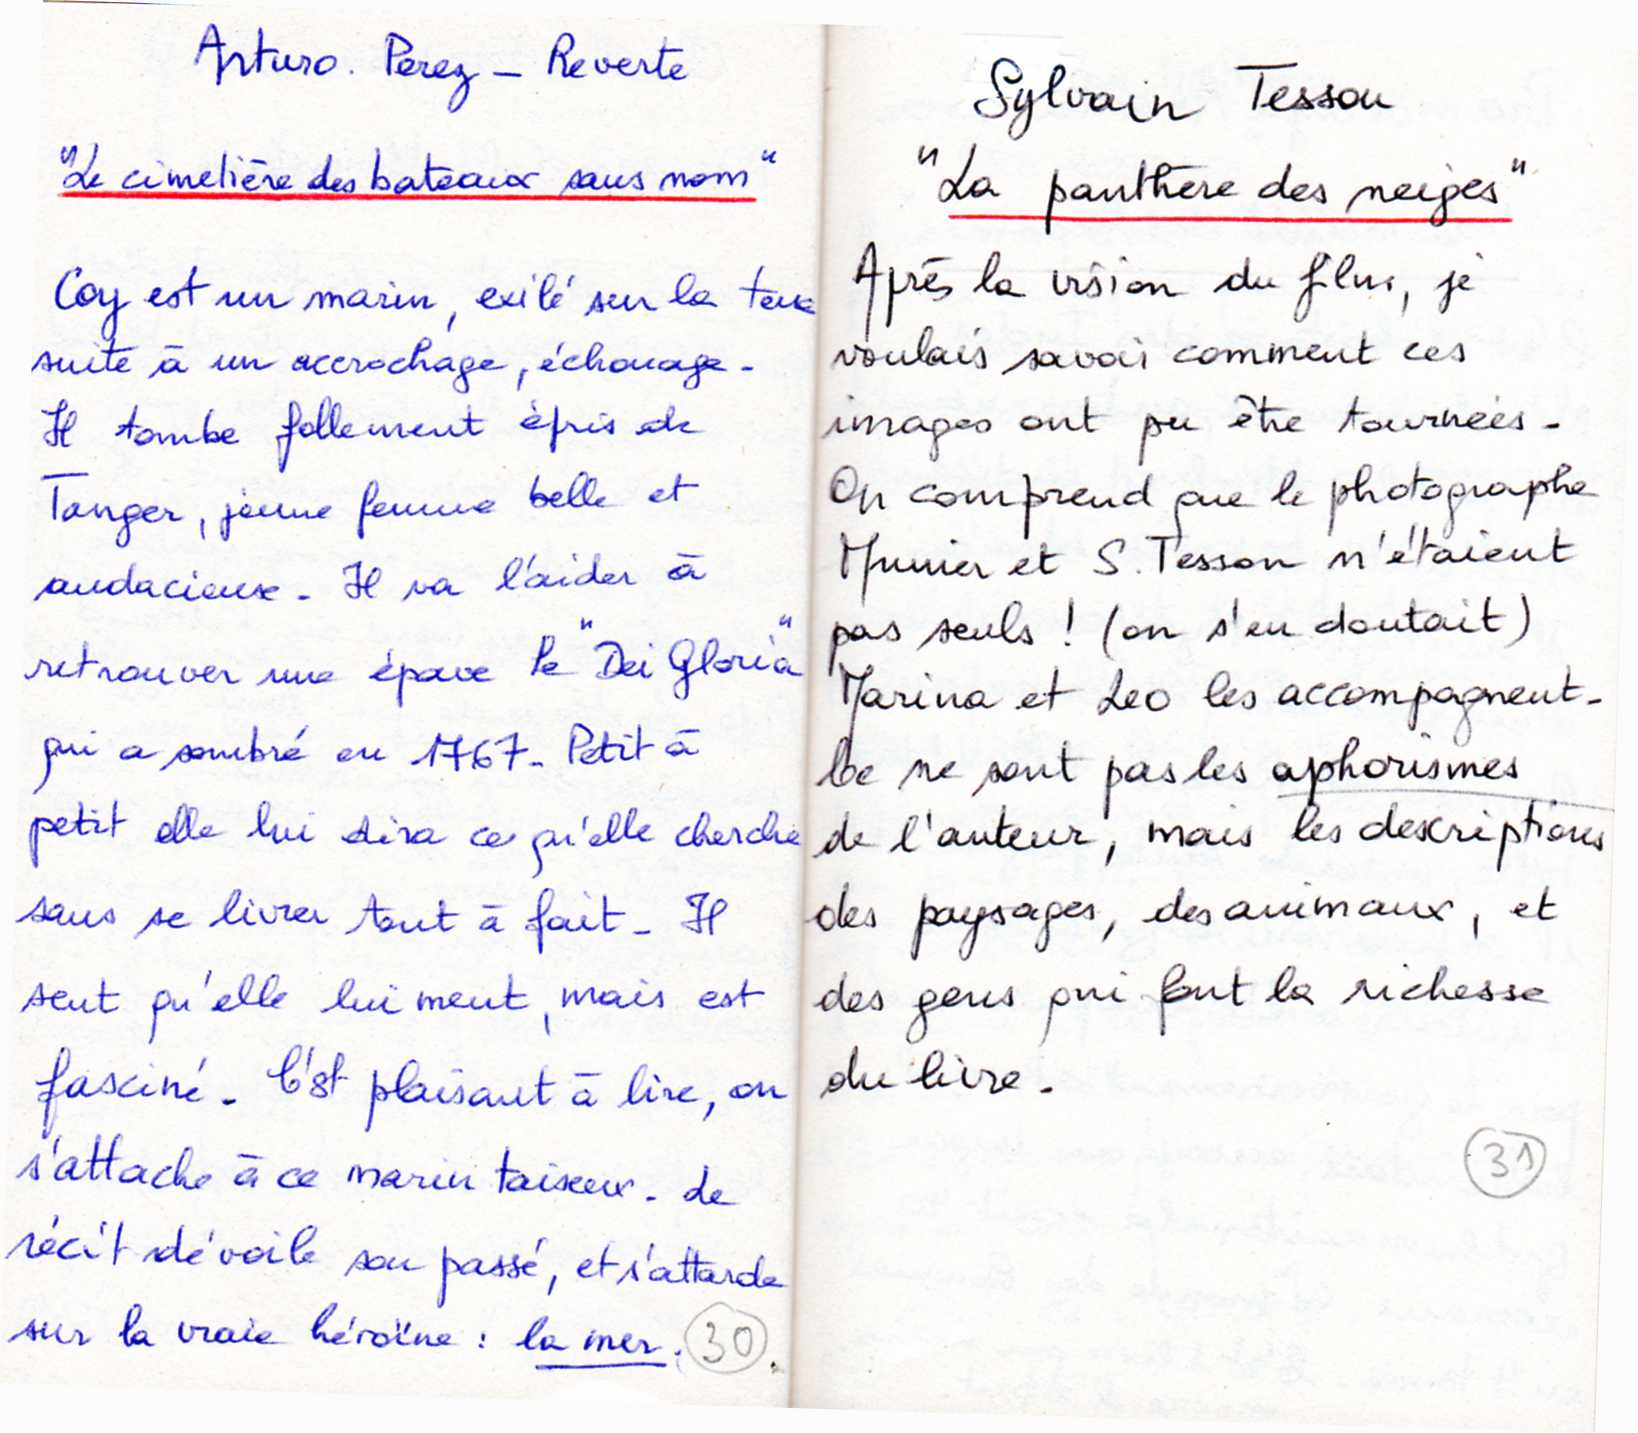 Arturo. Perez - Reverte
"Le cimetière des bateaux sans nom"
Coy est un marin, exilé sur la terre
suite à un accrochage, échouage.
Il tombe follement épris de
Tanger, jeune femme belle et
audacieuse. Il va l'aider à
retrouver une épave le "Dei Gloria"
qui a sombré en 1767. Petit à
petit elle lui dira ce qu'elle cherche
sans se livrer tout à fait. Il
sent qu'elle lui ment, mais est
fasciné. C'est plaisant à lire, on
s'attache à ce marin taiseux. Le
récit dévoile son passé, et s'attarde
sur la vraie héroïne : la mer.
30
Sylvain Tesson
"La panthère des neiges"
Après la vision du film, je
voulais savoir comment ces
images ont pu être tournées.
On comprend que le photographe
Munier et S. Tesson n'étaient
pas seuls ! (on s'en doutait)
Marina et Leo les accompagnent.
Ce ne sont pas les aphorismes
de l'auteur, mais les descriptions
des paysages, des animaux, et
des gens qui font la richesse
du livre.
31